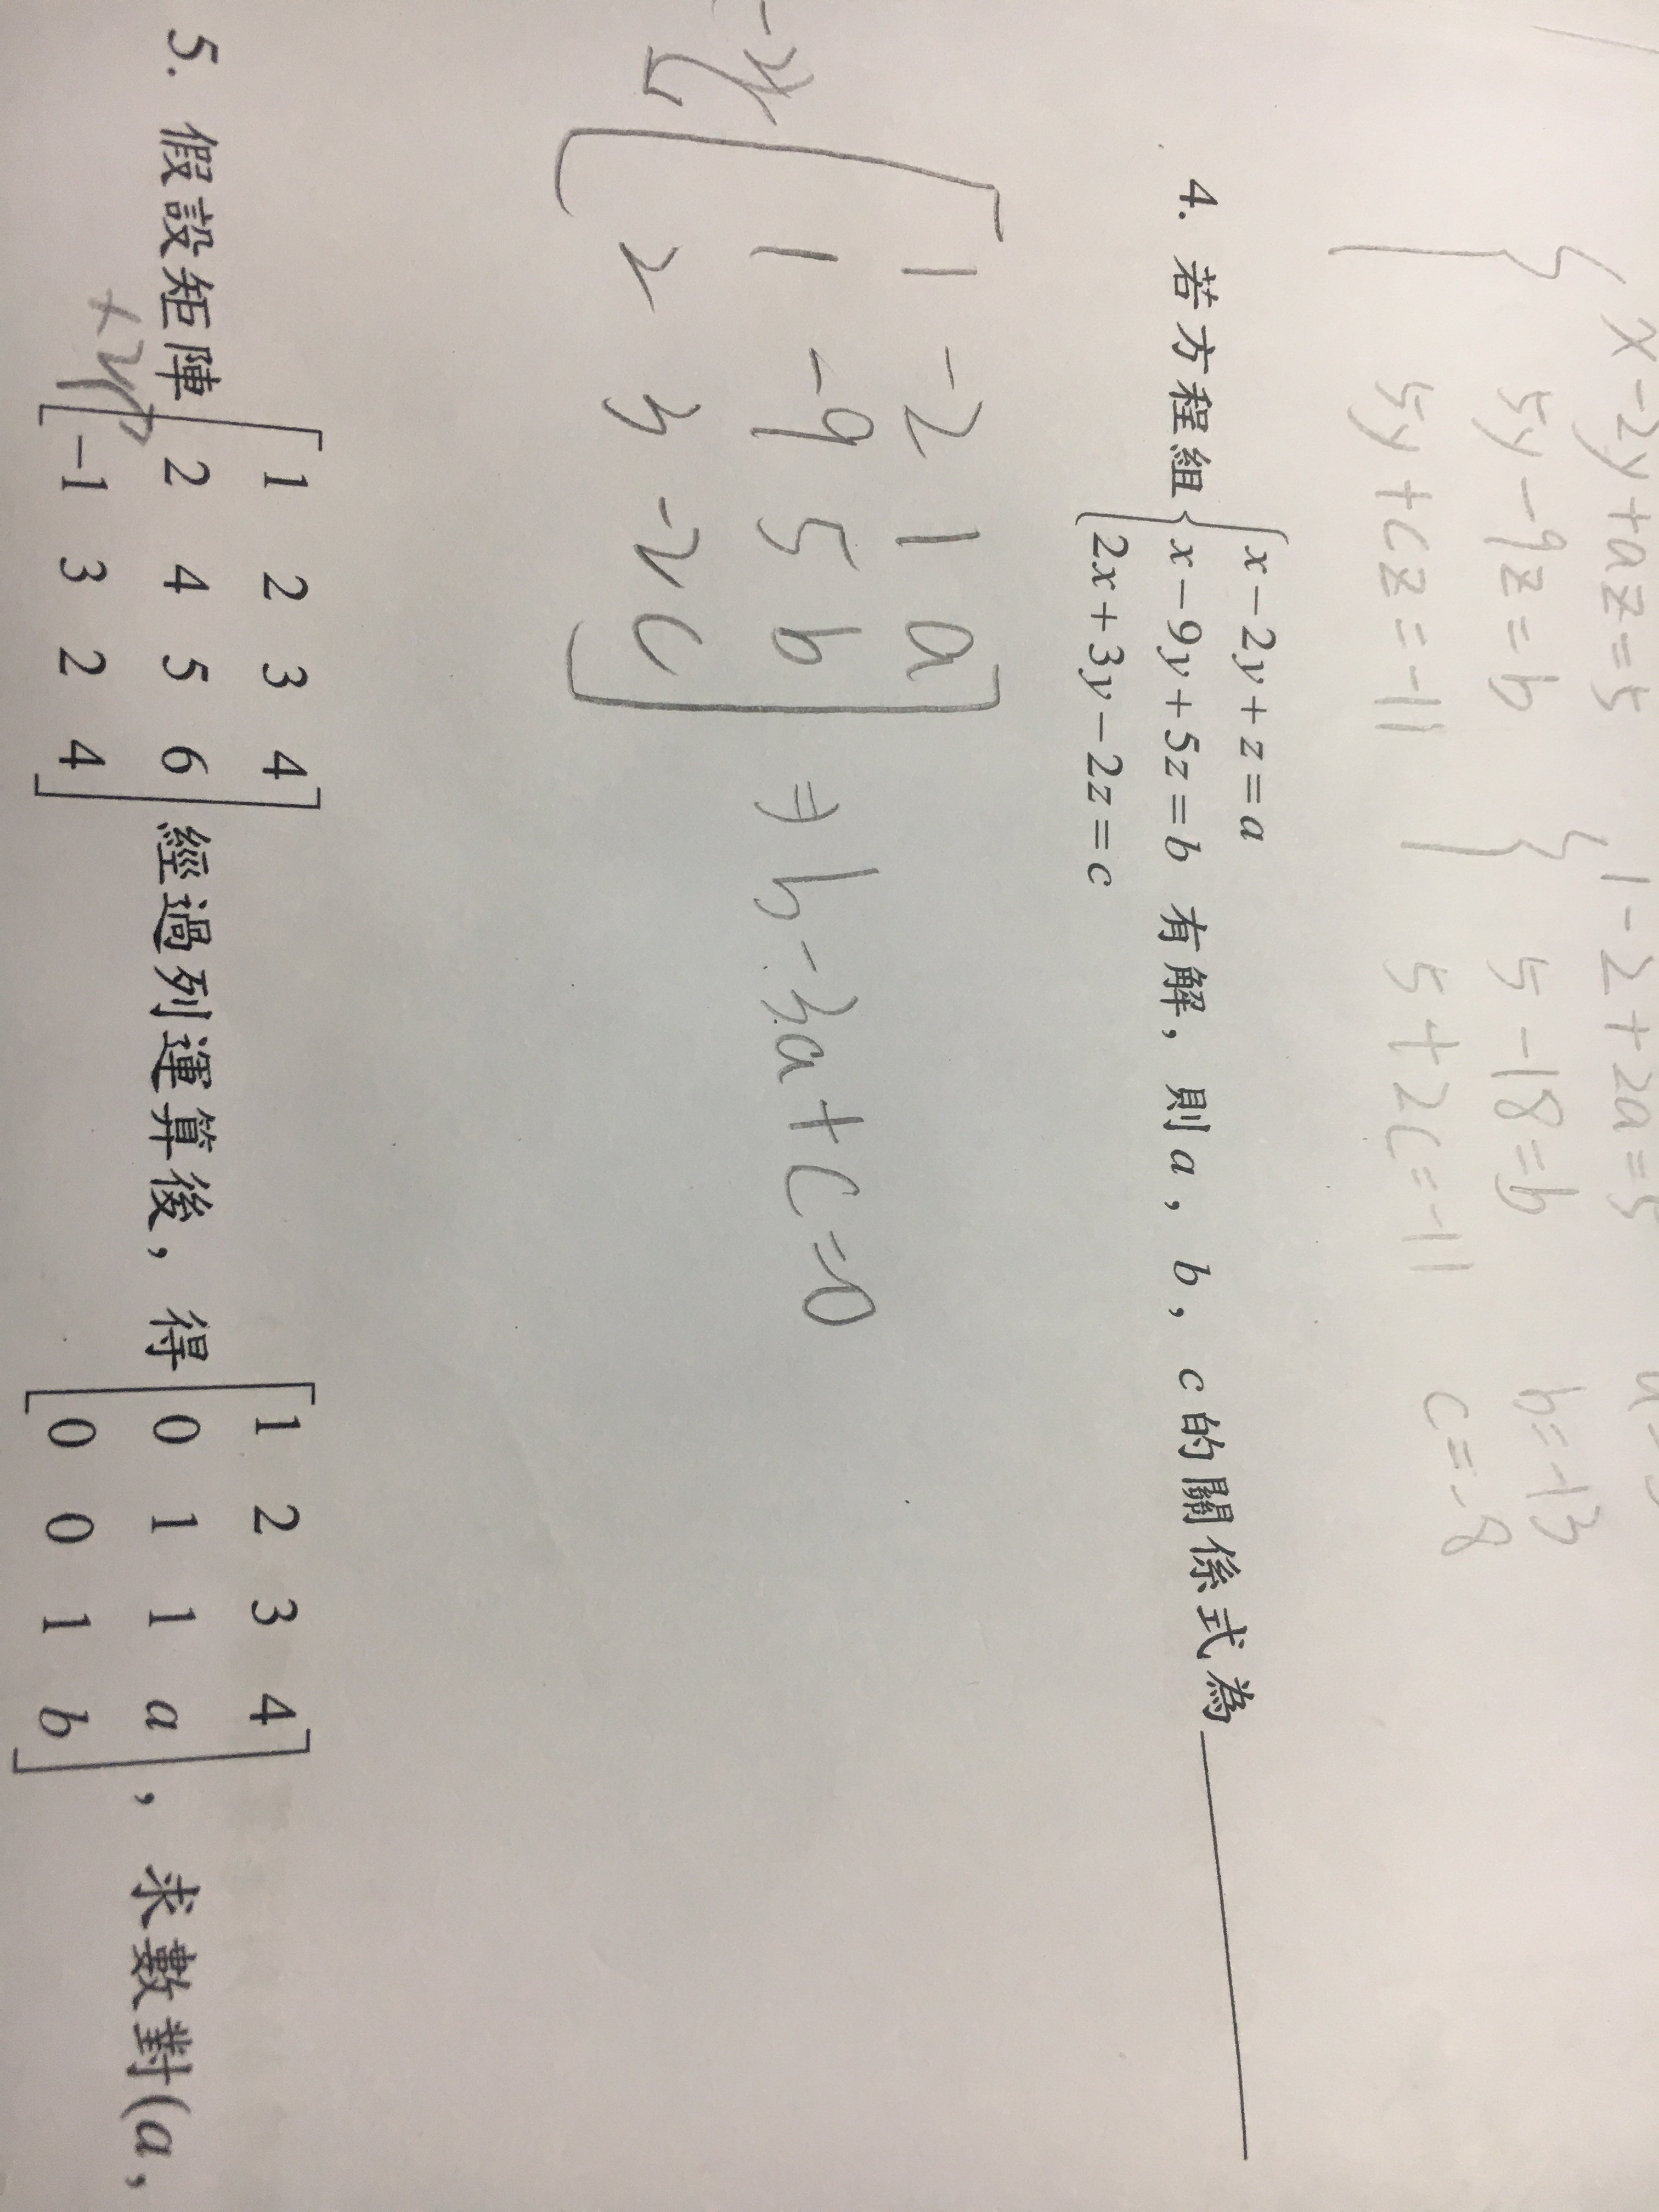 { x-2y+az=5 { 1-2+2a=5
5y-9z=b 5-18=b b=-13
5y+cz=-11 5+2c=-11 c=-8
4. 若方程組 { x-2y+z=a
x-9y+5z=b 有解，則a，b，c的關係式為
2x+3y-2z=c
1 -2 1 a
1 -9 5 b ⇒ b-3a+c=0
2 3 -2 c
1 2 3 4 1 2 3 4
5. 假設矩陣 2 4 5 6 經過列運算後，得 0 1 1 a ，求數對(a,
-1 3 2 4 0 0 1 b